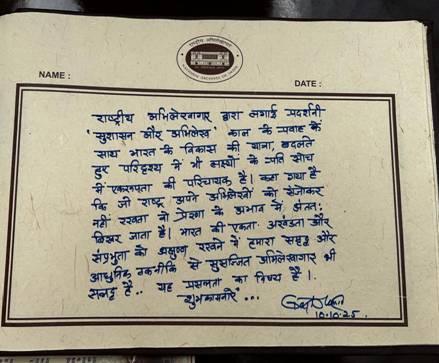 राष्ट्रीय अभिलेखागार
NATIONAL ARCHIVES OF INDIA
NAME :
DATE :
राष्ट्रीय अभिलेखागार द्वारा लगाई प्रदर्शनी
'सुशासन और अभिलेख' काल के प्रवाह के
साथ भारत के विकास की यात्रा, बदलते
हुए परिदृश्य में भी लक्ष्यों के प्रति सोच
में एकरूपता की परिचायक है। कहा गया है
कि जो राष्ट्र अपने अभिलेखों को संजोकर
नहीं रखता वो प्रेरणा के अभाव में अंतत:
बिखर जाता है। भारत की एकता, अखंडता और
संप्रभुता को अक्षुण्ण रखने में हमारा समृद्ध और
आधुनिक तकनीकि से सुसज्जित अभिलेखागार भी
सन्नद्ध है.. यह प्रसन्नता का विषय है।
शुभकामनाएँ ...
10.10.25.